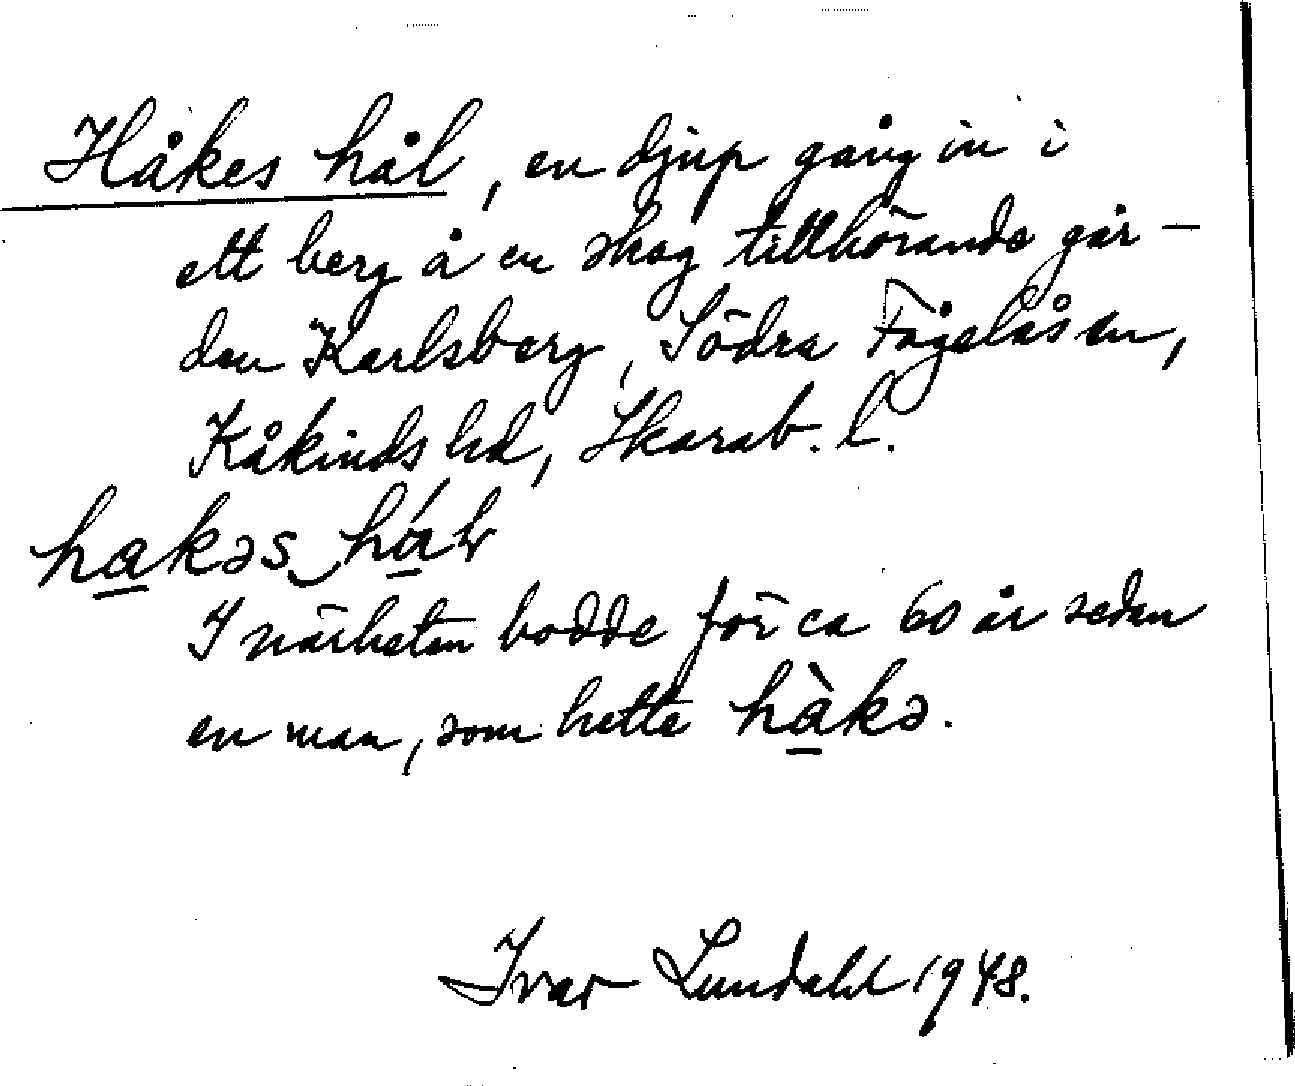 Håkes hål, en djup gång in i
ett berg å en skog tillhörande går-
den Karlsberg, Södra Fågelåsen,
Kåkinds hd, Skarab. l.
hakəs hál
I närheten bodde för ca 60 år sedan
en man, som hette hàkə.
Ivar Lundahl 1948.